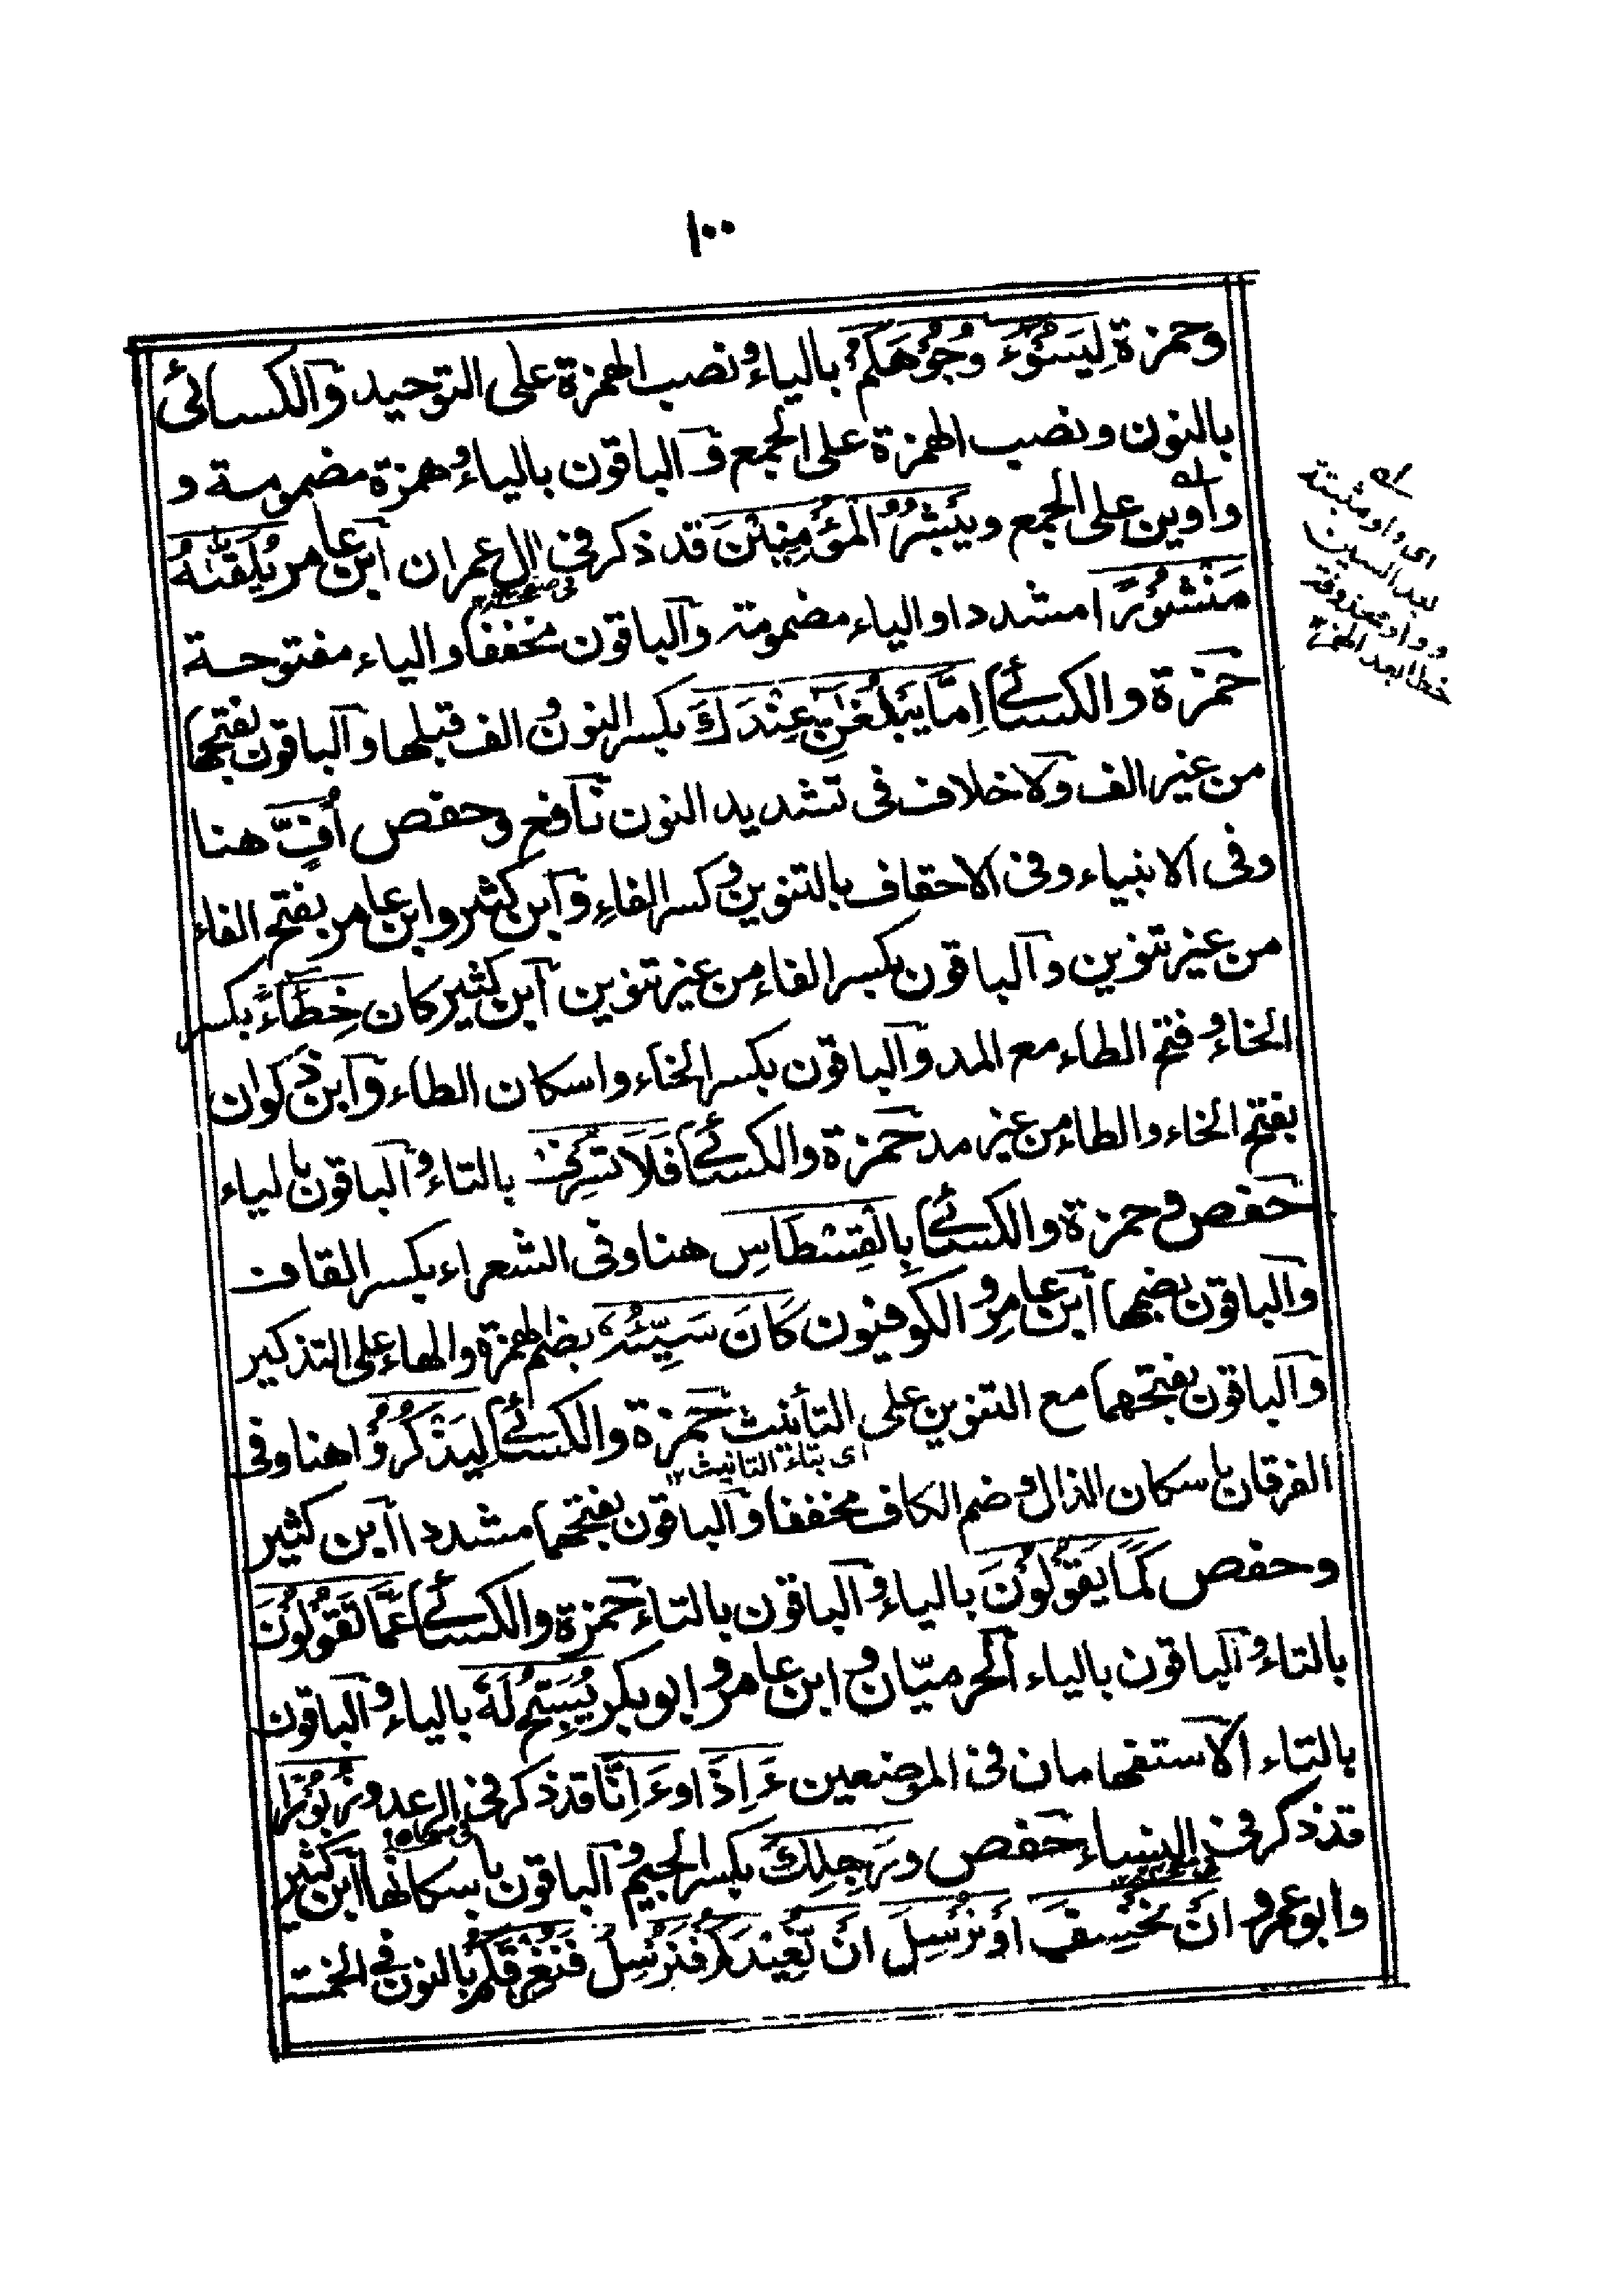 ١٠٠
وحمزة لِيَسُوْءَ وُجُوْهَكُمْ بالياء ونصب الهمزة على التوحيد وَالكسائى
بالنون ونصب الهمزة على الجمع وَالباقون بالياء وهمزة مضمومة و
واوين على الجمع ويَبْشُرُ الْمُؤْمِنِيْنَ قد ذكر فى اٰل عمران ابن عامر يُلَقّٰىهُ
مَنْشُوْرًا مشددا والياء مضمومة وَالباقون مخففا والياء مفتوحة
حمزة والكسائى اِمَّا يَبْلُغَٰنِّ عِنْدَكَ بكسر النون والف قبلها وَالباقون بفتحها
من غير الف ولا خلاف فى تشديد النون نافع وحفص اُفٍّ هنا
وفى الانبياء وفى الاحقاف بالتنوين وكسر الفاء وابن كثير وابن عامر بفتح الفاء
من غير تنوين وَالباقون بكسر الفاء من غير تنوين ابن كثير كان خِطَآءً بكسر
الخاء وفتح الطاء مع المد وَالباقون بكسر الخاء واسكان الطاء وابن ذكوان
بفتح الخاء والطاء من غير مد حمزة والكسائى فَلَا تُسْرِفْ بالتاء وَالباقون بالياء
حفص وحمزة والكسائى بِالْقِسْطَاسِ هنا وفى الشعراء بكسر القاف
وَالباقون بضمها ابن عامر والكوفيون كَانَ سَيِّئُهٗ بضم الهمزة والهاء على التذكير
وَالباقون بفتحهما مع التنوين على التأنيث حمزة والكسائى لِيَذْكُرُوْا هنا وفى
اى بتاء التانيث ١٢
الفرقان باسكان الذال وضم الكاف مخففا وَالباقون بفتحهما مشددا ابن كثير
وحفص كَمَا يَقُوْلُوْنَ بالياء وَالباقون بالتاء حمزة والكسائى عَمَّا تَقُوْلُوْنَ
بالتاء وَالباقون بالياء الحرميّان وابن عامر وابو بكر يُسَبِّحُ لَهٗ بالياء وَالباقون
بالتاء الاستفهامان فى الموضعين ءَاِذَا وءَاِنَّا قد ذكر فى الرعد وزُبُوْرًا
قد ذكر فى النساء حفص ورَجِلِكَ بكسر الجيم وَالباقون باسكانها ابن كثير
وابو عمرو اَنْ نَخْسِفَ اَوْ نُرْسِلَ اَنْ نُّعِيْدَكُمْ فَنُرْسِلَ فَنُغْرِقَكُمْ بالنون فى الخمسة
اى واو مثبتة
بعد السين
و واو محذوفة
خطا بعد الهمزة